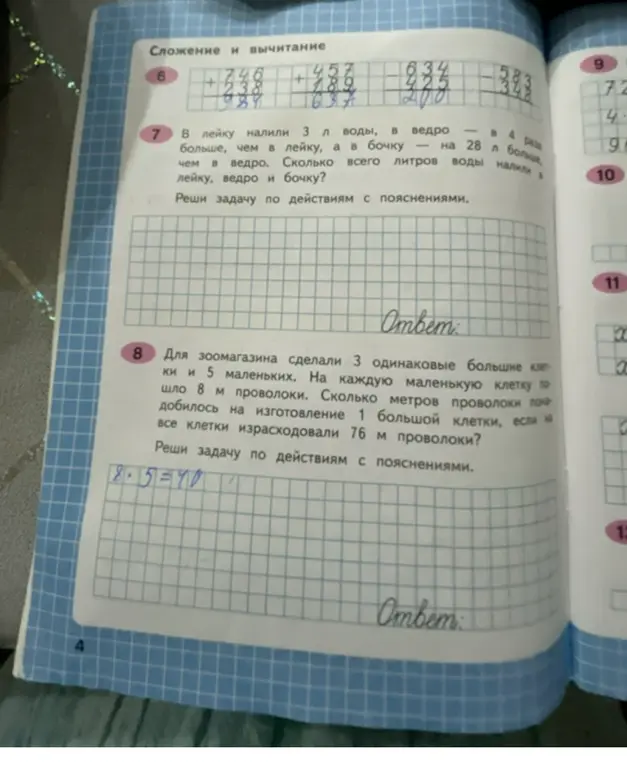 Сложение и вычитание
6 + 746 + 457 − 634 − 583
238 189 425 348
984 637
7 В лейку налили 3 л воды, в ведро — в 4 раза
больше, чем в лейку, а в бочку — на 28 л больше,
чем в ведро. Сколько всего литров воды налили в
лейку, ведро и бочку?
Реши задачу по действиям с пояснениями.
Ответ:
8 Для зоомагазина сделали 3 одинаковые большие клет-
ки и 5 маленьких. На каждую маленькую клетку по-
шло 8 м проволоки. Сколько метров проволоки пона-
добилось на изготовление 1 большой клетки, если на
все клетки израсходовали 76 м проволоки?
Реши задачу по действиям с пояснениями.
8 · 5 = 40
Ответ:
4
9
72
4 ·
10
11